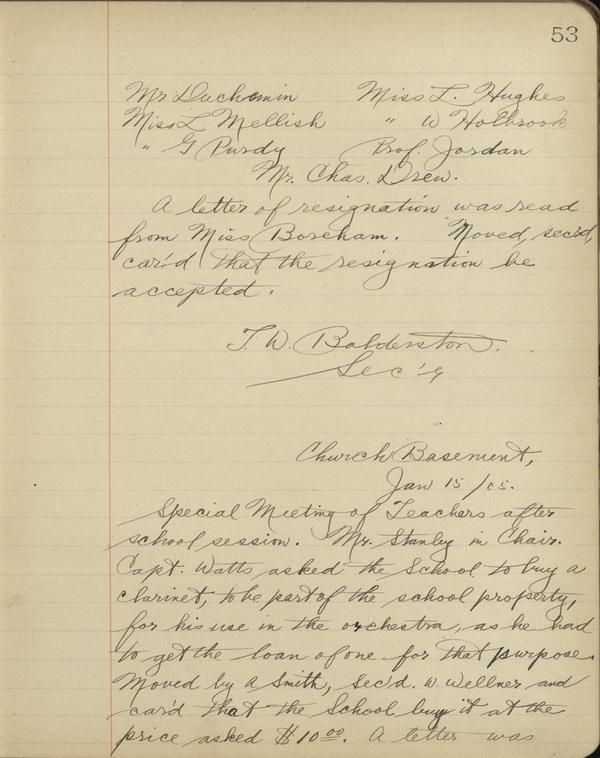 53
Mr Duchemin Miss L. Hughes
Miss L Mellish " W Holbrook
" G Purdy Prof. Jordan
Mr. Chas. Drew.
A letter of resignation was read
from Miss Boreham. Moved, sec'd,
car'd that the resignation be
accepted.
T. W. Balderston.
Sec'y
Church Basement,
Jan 15/05.
Special Meeting of Teachers after
school session. Mr. Stanley in Chair.
Capt. Watts asked the School to buy a
clarinet, to be part of the school property,
for his use in the orchestra, as he had
to get the loan of one for that purpose.
Moved by A Smith, Sec'd. W. Wellner and
car'd that the School buy it at the
price asked $10.00. A letter was